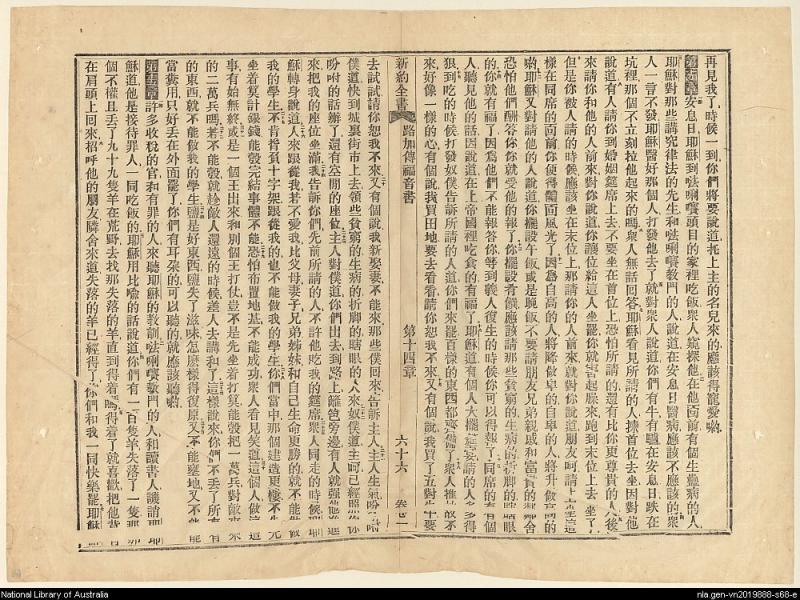 再見我了時候一到你們將要說道托上主的名兒來的應該得寵愛喇
第十四章安息日耶穌到㕷唎嚽頭目的家裡吃飯衆人窺探他在他面前有個生蠱病的人
耶穌對那些講究律法的先生和㕷唎嚽教門的人說道在安息日醫病應該不應該的衆
人一言不發耶穌醫好那個人打發他去了就對衆人說道你們有牛有驢在安息日跌在
坑裡那個不立刻拉他起來的嗎衆人無話回答耶穌看見所請的人揀首位去坐因對他
說道有人請你到婚姻筵席上去不要坐在首位上恐怕所請的還有比你更尊貴的人後
來請你和他的人前來對你說道你讓位給這人坐罷你就
但是你被人請的時候應該坐在末位上那請你的人前來就對你說道朋友呵請上
樣在同席的面前你便得體面風光了因爲自高的人將降做卑的自卑的人將升做高的
喇耶穌又對請他的人說道你擺設午飯或是晚飯不要請朋友兄弟親戚和富貴的
恐怕他們酬答你你就受他的報了你擺設肴饌應該請那些貧窮的生病的折脚的瞎眼
的你就有福了因爲他們不能報答你等到義人復生的時候你可以得報了同席的有個
人聽見他的話因說道在上帝國裡吃食的有福了耶穌道有個人大擺筵宴請的人多得
狠到吃的時候打發奴僕告訴所請的人道你們來罷百樣的東西都齊備了衆人推故不
來好像一樣的心有個說我買田地要去看看請你恕我不來又有個說我買了五對牛要
新約全書 路加傳福音書 第十四章 六十六
去試試請你恕我不來又有個說我新娶妻不能來那些僕回來告訴主人主人生氣吩咐
僕道快到城裏街市上去領些貧窮的生病的折脚的瞎眼的人來奴僕道主呵已經照你
吩咐的話辦了還有空閒的座位主人對僕道你們出去到路上離笆旁邊有人就强他進
來把我的座位坐滿我告訴你們先前所請的人不許他吃我的筵席衆人同走的時候耶
穌轉身說道人來跟從我若不愛我比父母妻子兄弟姊妹和自己生命更勝的就不能做
我的學生不肯背負十字架跟從我的也不能做我的學生你們當中那個建造更樓不先
坐着筭計銀錢能彀完結事體不能恐怕布置地基不能成功衆人看見笑道這個人做這
事有始無終或是一個王出來和別個王打仗豈不是先坐着打筭能彀把一萬兵對敵來
的二萬兵嗎若不能彀就趁敵人還遠的時候差人去講和了這樣說來你們不丟了所有
的東西就不能做我的學生鹽是好東西鹽失了滋味怎麼樣得復原又不能壅地又不能
當糞用只好丟在外面罷了你們有耳朶的可以聽的就應該聽喇
第十五章許多收稅的官和有罪的人來聽耶穌的教訓㕷唎嚽教門的人和讀書人譏誚耶
穌道他是接待罪人一同吃飯的耶穌用比喻的話說道你們有一百隻羊失落了一隻那
個不權且丟了九十九隻羊在荒野去找那失落的羊直到得着嗎得着了就喜歡把他背
在肩頭上回來招呼他的朋友隣舍來道失落的羊已經得了你們和我一同快樂罷耶穌
National Library of Australia
nla.gen-vn2019888-s68-e